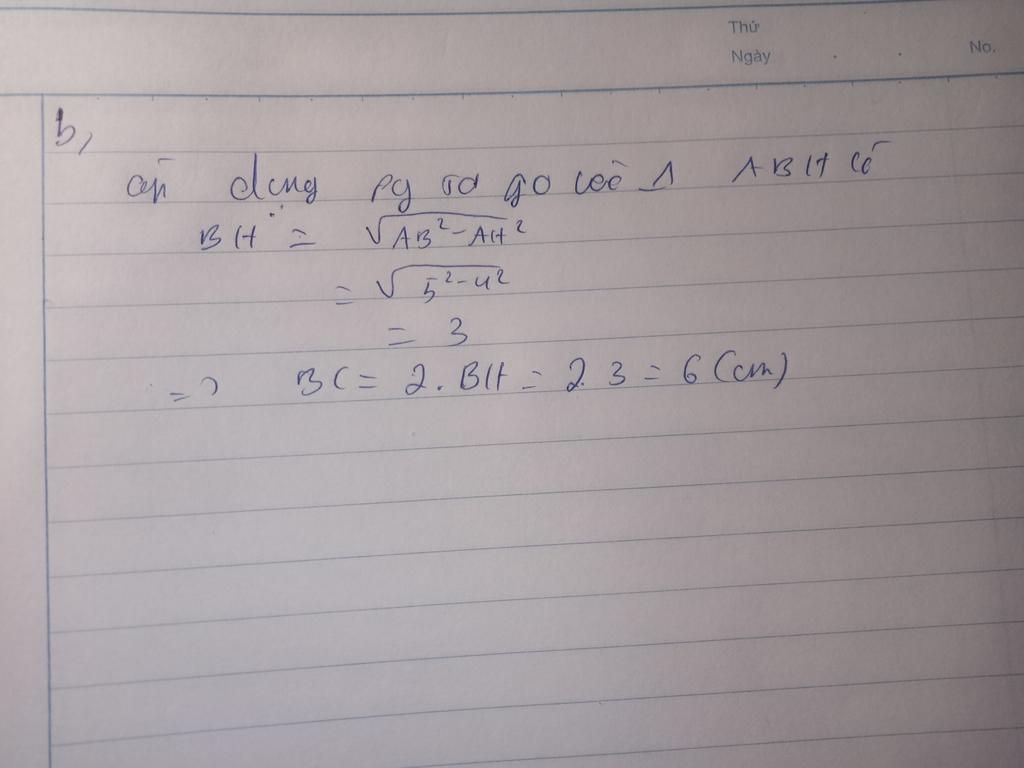 Thứ
Ngày . . No.
b,
áp dụng pg ta go vào Δ ABH có
BH = √AB² - AH²
= √5² - 4²
= 3
=> BC = 2. BH = 2. 3 = 6 (cm)